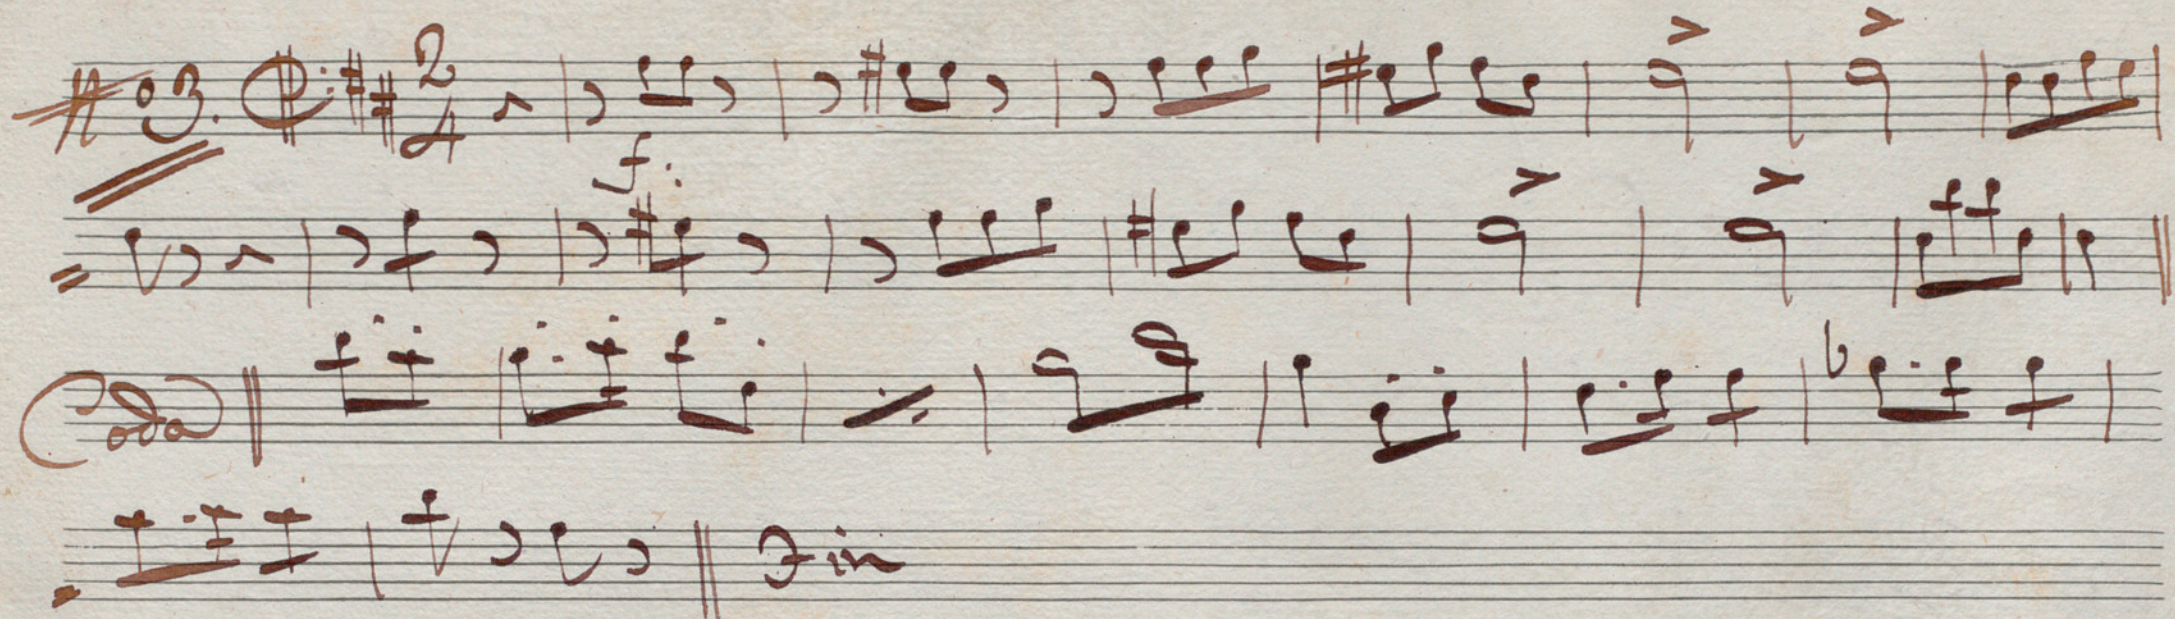 No 3. 2/4
f.
Coda
Fin